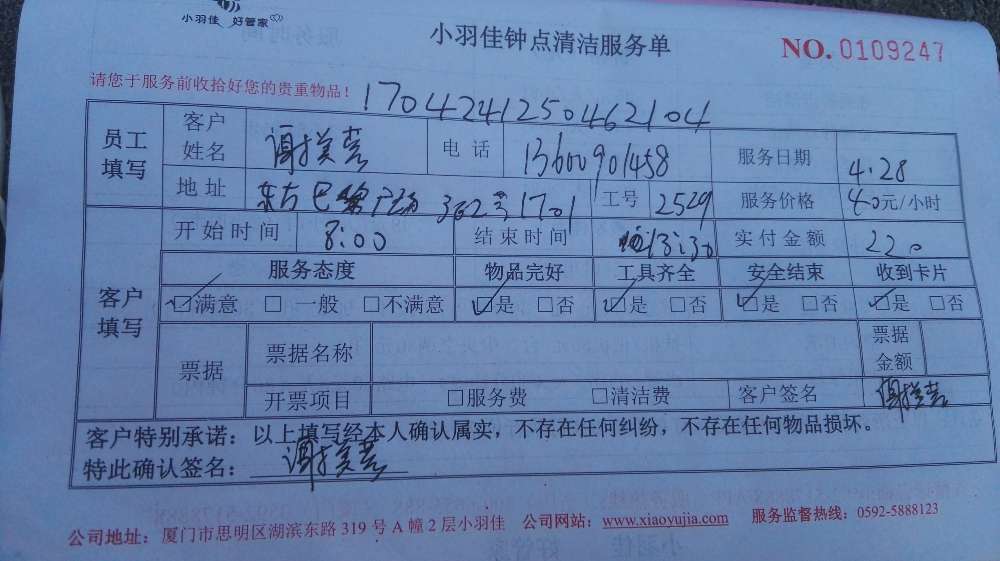 小羽佳 好管家
小羽佳钟点清洁服务单
NO. 0109247
请您于服务前收拾好您的贵重物品！
1704241250462104
员工填写 客户姓名 谢 电话 13600901458 服务日期 4.28
地址 东方巴黎广场 302号1701 工号 2529 服务价格 40元/小时
开始时间 8:00 结束时间 13:30 实付金额 220
客户填写 服务态度 物品完好 工具齐全 安全结束 收到卡片
☑满意 □一般 □不满意 ☑是 □否 ☑是 □否 ☑是 □否 ☑是 □否
票据 票据名称 票据金额
开票项目 □服务费 □清洁费 客户签名 谢
客户特别承诺：以上填写经本人确认属实，不存在任何纠纷，不存在任何物品损坏。
特此确认签名： 谢
公司地址：厦门市思明区湖滨东路319号A幢2层小羽佳 公司网站：www.xiaoyujia.com 服务监督热线：0592-5888123